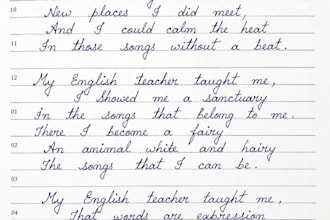 10 New places I did meet,
And I could calm the heat
11 In those songs without a beat.
12 My English teacher taught me,
I showed me a sanctuary
01 In the songs that belong to me.
There I become a fairy
02 An animal white and hairy
The songs that I can be.
03
My English teacher taught me,
04 That words are expression